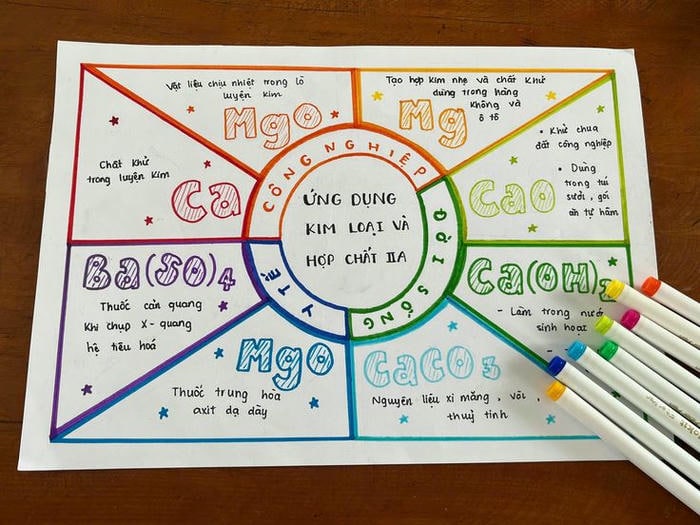 Vật liệu chịu nhiệt trong lò
luyện kim
MgO
Tạo hợp kim nhẹ và chất khử
dùng trong hàng
không và
ô tô
Mg
Chất khử
trong luyện kim
Ca
CÔNG NGHIỆP
• Khử chua
đất công nghiệp
• Dùng
trong túi
sưởi, gói
ăn tự hâm
CaO
ỨNG DỤNG
KIM LOẠI VÀ
HỢP CHẤT IIA
ĐỜI SỐNG
Y TẾ
Ba(SO)4
Thuốc cản quang
khi chụp X-quang
hệ tiêu hoá
Ca(OH)2
- Làm trong nước
sinh hoạt
-
MgO
Thuốc trung hòa
axit dạ dày
CaCO3
Nguyên liệu xi măng, vôi,
thuỷ tinh